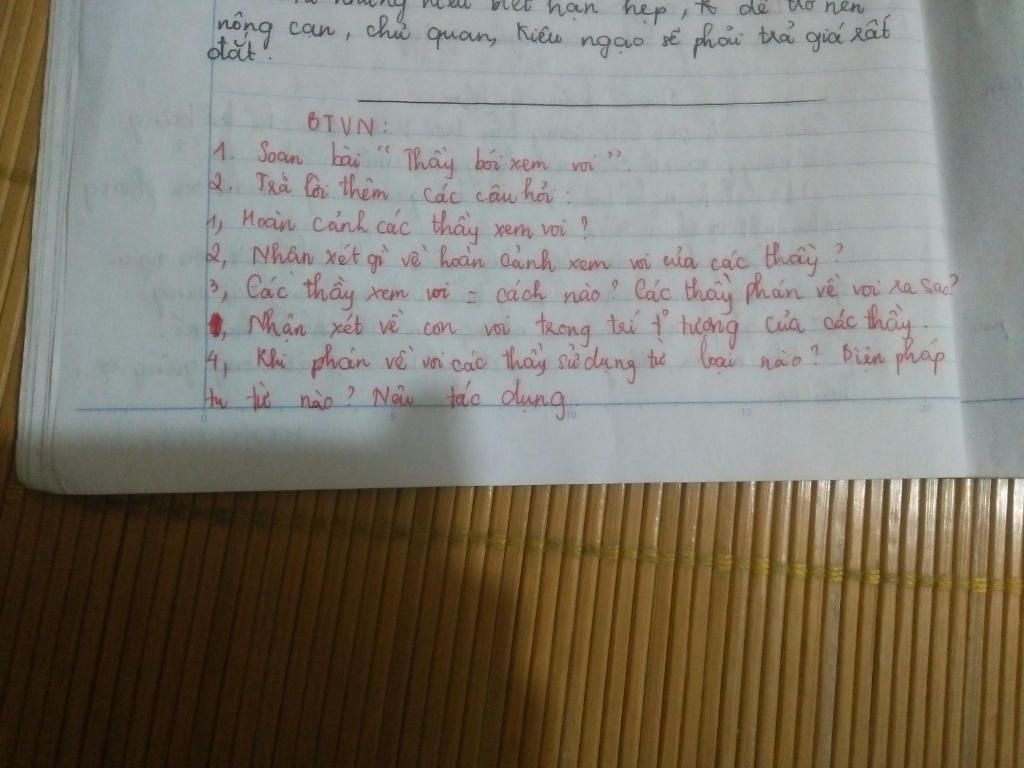 những hiểu biết hạn hẹp, k dễ trở nên
nông cạn, chủ quan, kiêu ngạo sẽ phải trả giá rất
đắt.
BTVN:
1. Soạn bài "Thầy bói xem voi".
2. Trả lời thêm các câu hỏi:
1, Hoàn cảnh các thầy xem voi?
2, Nhận xét gì về hoàn cảnh xem voi của các thầy?
3, Các thầy xem voi = cách nào? Các thầy phán về voi ra sao?
, Nhận xét về con voi trong trí tưởng của các thầy.
4, Khi phán về voi các thầy sử dụng từ loại nào? Biện pháp
tu từ nào? Nêu tác dụng.
0 5 10 15 20